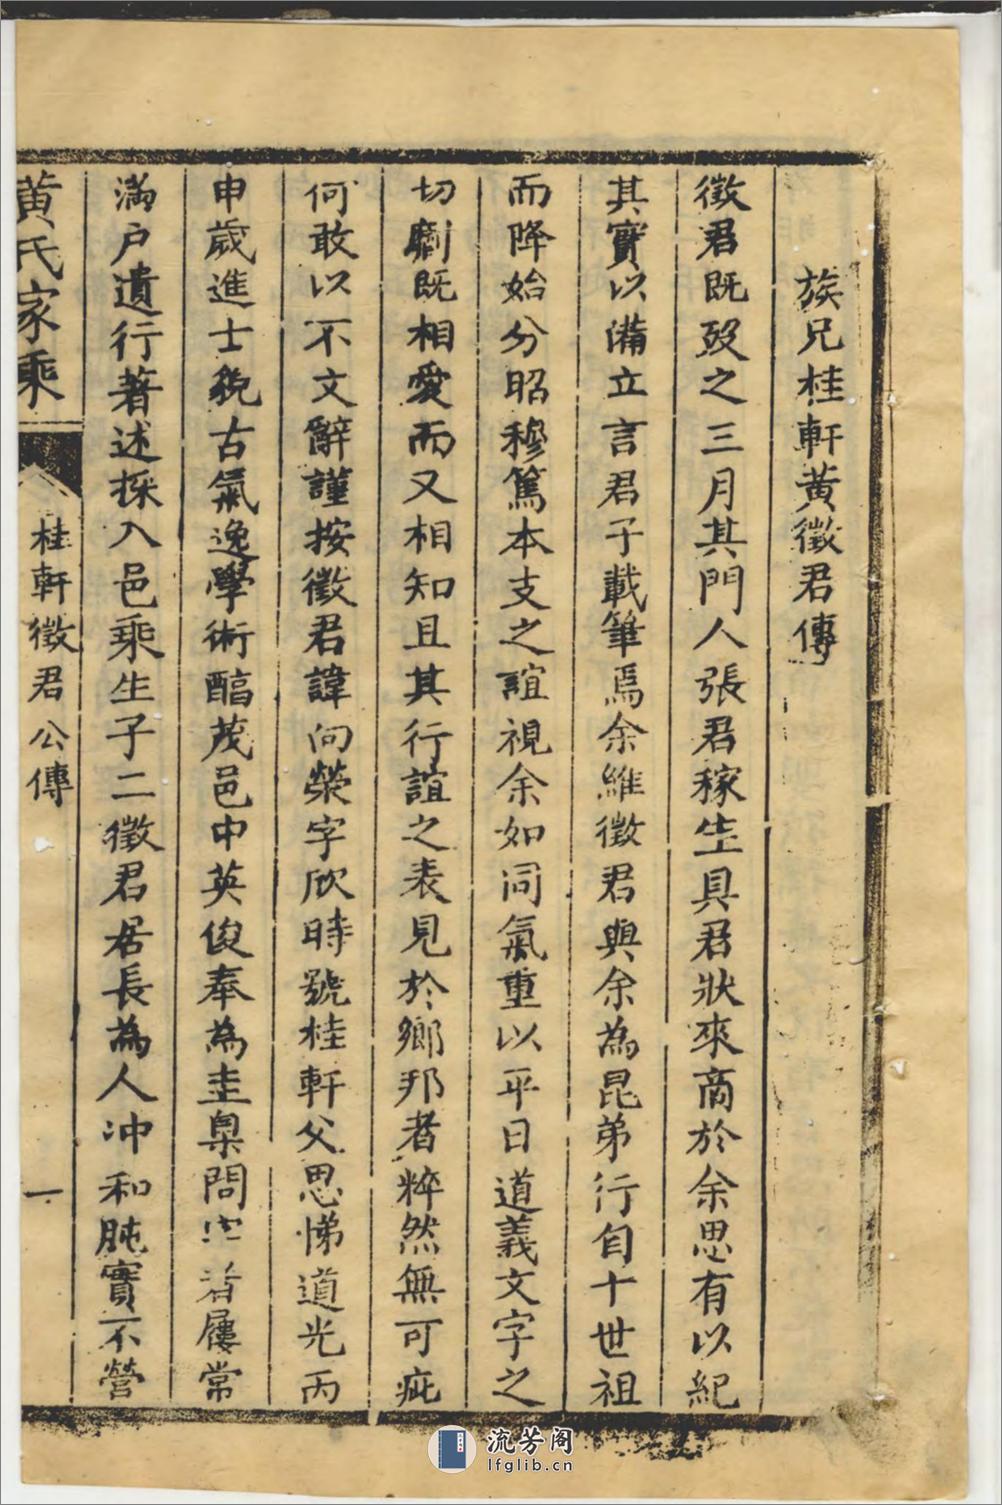 族兄桂軒黃徵君傳
徵君既歿之三月其門人張君稼生具君狀來商於余思有以紀
其實以備立言君子載筆焉余維徵君與余為昆弟行自十世祖
而降始分昭穆篤本支之誼視余如同氣重以平日道義文字之
切劘既相愛而又相知且其行誼之表見於鄉邦者粹然無可疵
何敢以不文辭謹按徵君諱向榮字欣時號桂軒父思悌道光丙
申歲進士貌古氣逸學術醇茂邑中英俊奉為圭臬問者屨常
滿戶遺行著述採入邑乘生子二徵君居長為人沖和肫實不營
黃氏家乘
桂軒徵君公傳
一
流芳阁
lfglib.cn